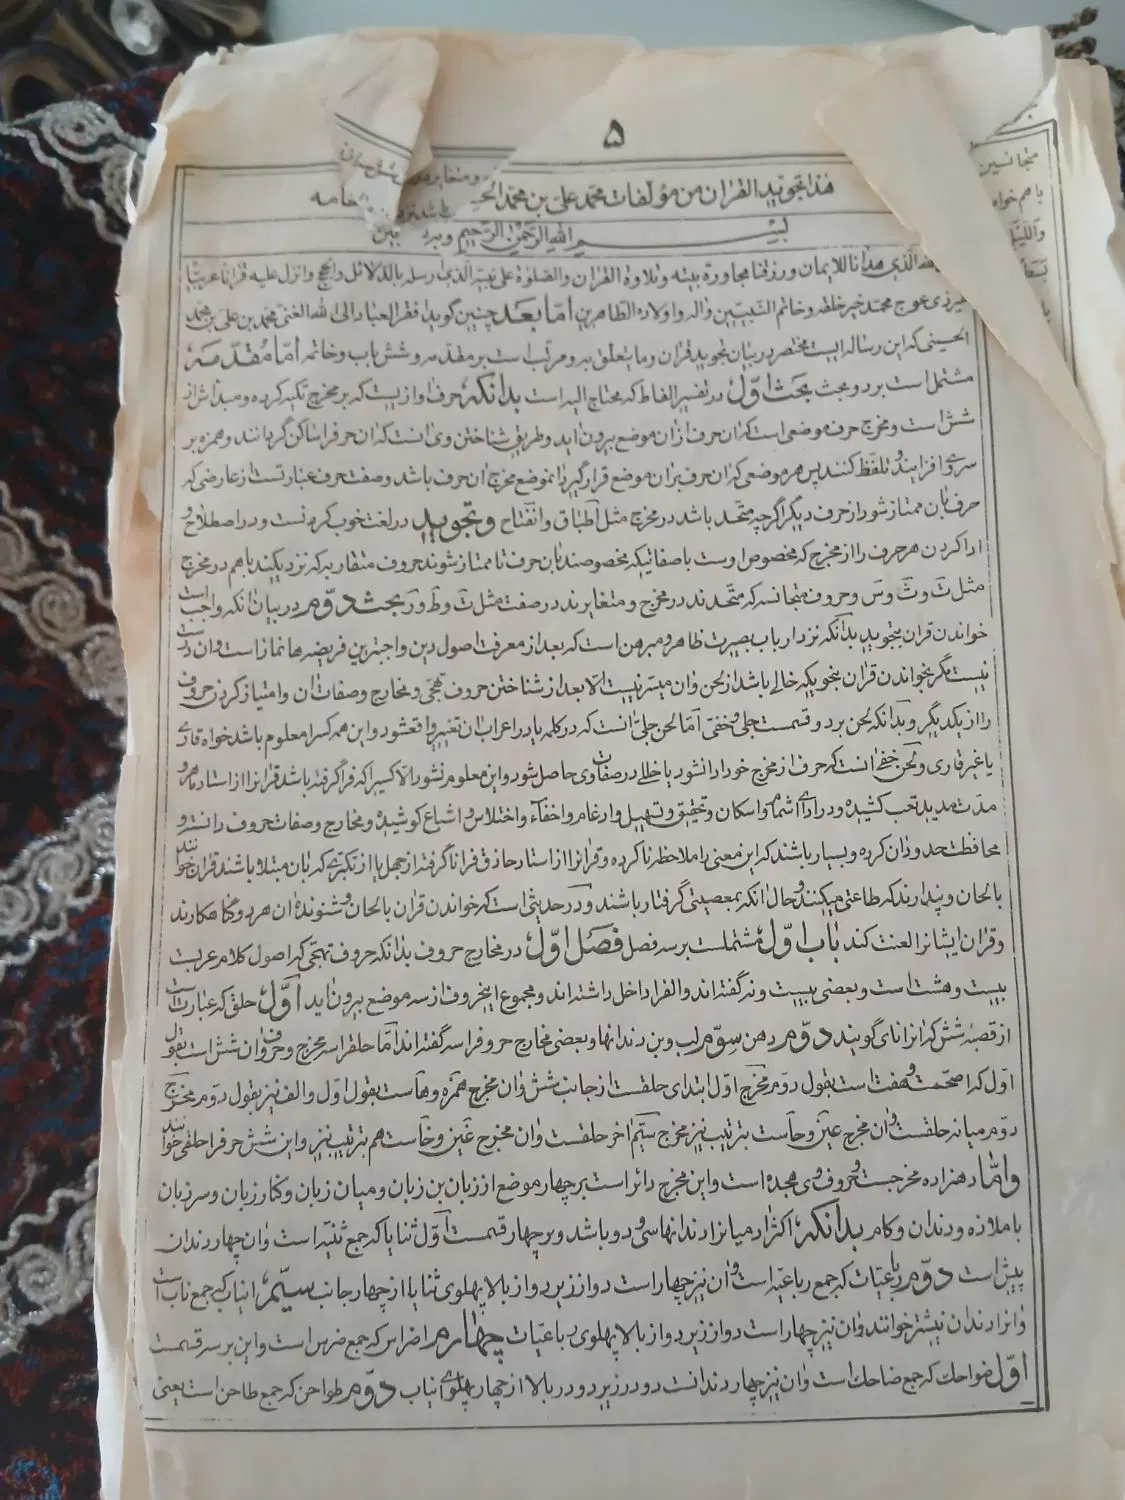 ۵
هذا تجوید القران من مؤلفات محمد علی بن محمد
بسم الله الرحمن الرحیم
الذی هدانا للایمان ورزقنا مجاورة بیته وتلاوة القران والصلوة علی نبیه الذی ارسله بالدلائل والحجج وانزل علیه قرانا عربیا
غیر ذی عوج محمد خیر خلقه وخاتم النبیین واله واولاده الطاهرین اما بعد چنین گوید افقر العباد الی الله الغنی محمد بن علی بن محمد
الحسینی که این رساله ایست مختصر در بیان تجوید قران وما یتعلق به ومرتب است بر مقدمه وشش باب وخاتمه اما مقدمه
مشتمل است بر دو مبحث بحث اول در تفسیر الفاظ که محتاج الیه است بدانکه حرف اوازیست که بر مخرج تکیه کرده ومبداش از
شش است ومخرج حرف موضعی است که ان حرف از ان موضع بیرون اید وطریق شناختن وی انست که ان حرف را ساکن گردانند وهمزه بر
سر وی افزایند وتلفظ کنند پس هر موضعی که ان حرف بر ان موضع قرار گیرد انموضع مخرج ان حرف باشد وصفت حرف عبارتست از عارضی که
حرف بان ممتاز شود از حرف دیگر اگرچه متحد باشد در مخرج مثل اطباق وانفتاح وتجوید در لغت خوب کردنست ودر اصطلاح
ادا کردن هر حرف را از مخرج که مخصوص اوست با صفاتیکه مخصوصند بان حرف تا ممتاز شوند حروف متقاربه که نزدیکند باهم در مخرج
مثل ت وث وس وحروف متجانسه که متحدند در مخرج ومتغایرند در صفت مثل ت وط ور بحث دوم در بیان انکه واجب است
خواندن قران بتجوید بدانکه نزد ارباب بصیرت ظاهر ومبرهن است که بعد از معرفت اصول دین واجبترین فریضه ها نماز است وان درست
نیست مگر بخواندن قران بنحویکه خالی باشد از لحن وان میسر نیست الا بعد از شناختن حروف تهجی ومخارج وصفات ان وامتیاز کردن حروف
را از یکدیگر وبدانکه لحن بر دو قسمت جلی وخفی اما لحن جلی انست که در کلمه یا در اعراب ان تغییر واقع شود واین همه کس را معلوم باشد خواه قاری
یا غیر قاری ولحن خفی انست که حرف از مخرج خود ادا نشود یا خللی در صفات وی حاصل شود واین معلوم نشود الا کسیرا که فرا گرفته باشد قرانرا از استاد ماهر و
مدت مدید تعب کشیده ودر ادای اشمام واسکان وتحقیق وتسهیل وادغام واخفاء واختلاس واشباع کوشیده ومخارج وصفات حروف دانسته و
محافظت حدود ان کرده وبسیار باشند که این معنی را ملاحظه نا کرده وقرانرا از استاد حاذق فرا نا گرفته از جهل یا از تکبری که بان مبتلا باشند قران خوانند
بالحان وپندارند که طاعتی میکنند وحال انکه بمعصیتی گرفتار باشند ودر حدیثی است که خواندن قران بالحان وشنونده ان هر دو گناهکارند
وقران ایشانرا لعنت کند باب اول مشتملست بر سه فصل فصل اول در مخارج حروف بدانکه حروف تهجی که اصول کلام عربست
بیست وهشت است وبعضی بیست ونه گفته اند والف را داخل داشته اند ومجموع اینحروف از سه موضع بیرون اید اول حلق که عبارتست
از قصبه شش که انرا نای گویند دوم دهن سوم لب وبن دندانها وبعضی مخارج حروف را سه گفته اند اما حلق را سه مخرج وحروف ان شش است بقول
اول که اصحست وهفت است بقول دوم مخرج اول ابتدای حلقست از جانب شش وان مخرج همزه وهاست بقول اول والف نیز بقول دوم مخرج
دوم میانه حلقست وان مخرج عین وحاست بترتیب نیز مخرج سیم اخر حلقست وان مخرج غین وخاست هم بترتیب نیز واین شش حرف را حلقی خوانند
واما دهن را ده مخرجست وحروف وی هجده است واین مخرج دائر است بر چهار موضع از زبان بن زبان ومیان زبان وکنار زبان وسر زبان
با ملازه ودندان وکام بدانکه اکثر ادمیانرا دندانها سی ودو باشد وبر چهار قسمت اول ثنایا که جمع ثنیه است وان چهار دندان
پیش است دوم رباعیات که جمع رباعیه است وان نیز چهار است دو از زیر دو از بالا پهلوی ثنایا از چهار جانب سیم انیاب که جمع ناب است
وانرا دندان نیشتر خوانند وان نیز چهار است دو از زیر دو از بالا پهلوی رباعیات چهارم اضراس که جمع ضرس است واین بر سه قسمت
اول ضواحک که جمع ضاحک است وان نیز چهار دندانست دو در زیر دو در بالا از چهار پهلوی انیاب دوم طواحن که جمع طاحن است یعنی